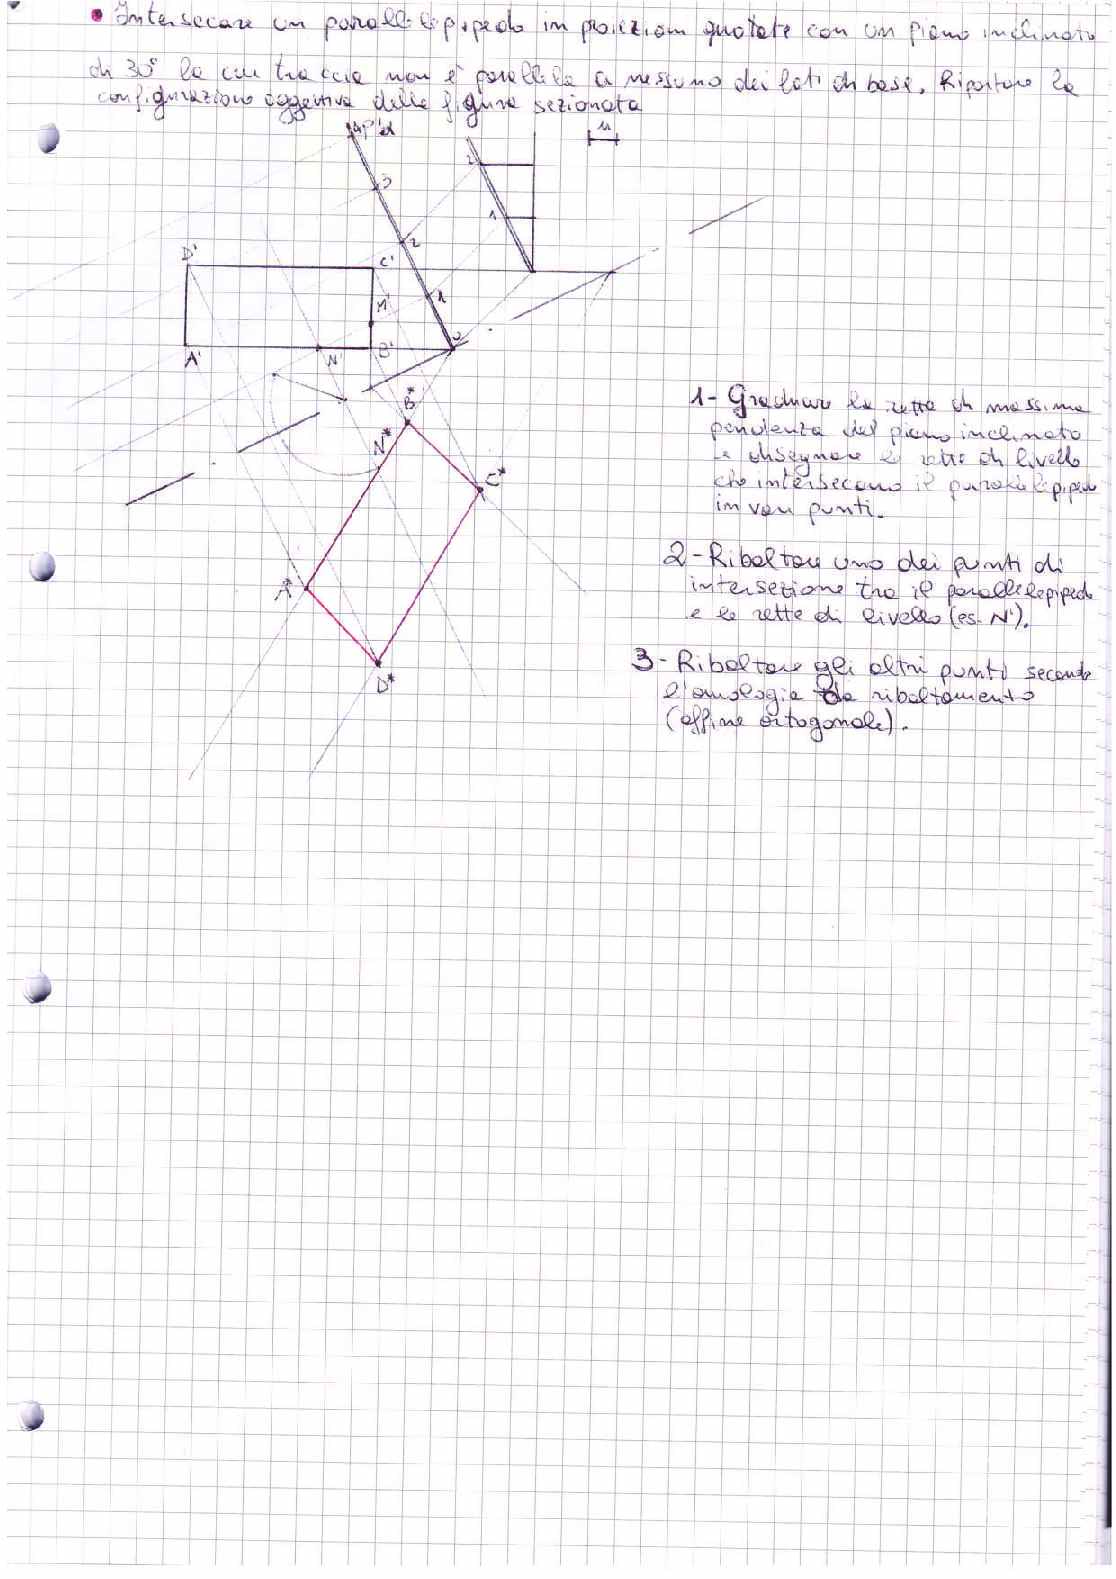 • Intersecare un parallelepipedo in proiezioni quotate con un piano inclinato
di 30° la cui traccia non è parallela a nessuno dei lati di base. Riportare la
configurazione oggettiva della figura sezionata
u
3
2
1
0
2
1
D'
C'
M'
A'
N'
B'
B*
N*
C*
A*
D*
1- Graduare la retta di massima
pendenza del piano inclinato
e disegnare le rette di livello
che intersecano il parallelepipedo
in vari punti.
2- Ribaltare uno dei punti di
intersezione tra il parallelepipedo
e le rette di livello (es. N').
3- Ribaltare gli altri punti secondo
l'omologia da ribaltamento
(affine ortogonale).